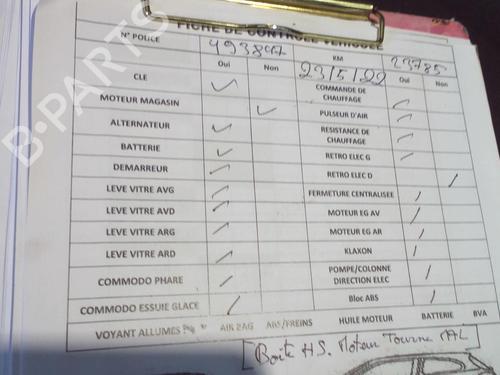 FICHE DE CONTROLE VEHICULE
N° POLICE 493847 KM 23785
Oui Non 23/5/22 Oui Non
CLE COMMANDE DE CHAUFFAGE
MOTEUR MAGASIN PULSEUR D'AIR
ALTERNATEUR RESISTANCE DE CHAUFFAGE
BATTERIE RETRO ELEC G
DEMARREUR RETRO ELEC D
LEVE VITRE AVG FERMETURE CENTRALISEE
LEVE VITRE AVD MOTEUR EG AV
LEVE VITRE ARG MOTEUR EG AR
LEVE VITRE ARD KLAXON
COMMODO PHARE POMPE/COLONNE DIRECTION ELEC
COMMODO ESSUIE GLACE Bloc ABS
VOYANT ALLUMES AIR BAG ABS/FREINS HUILE MOTEUR BATTERIE BVA
Boite HS. Moteur Tourne MAL
B-PARTS